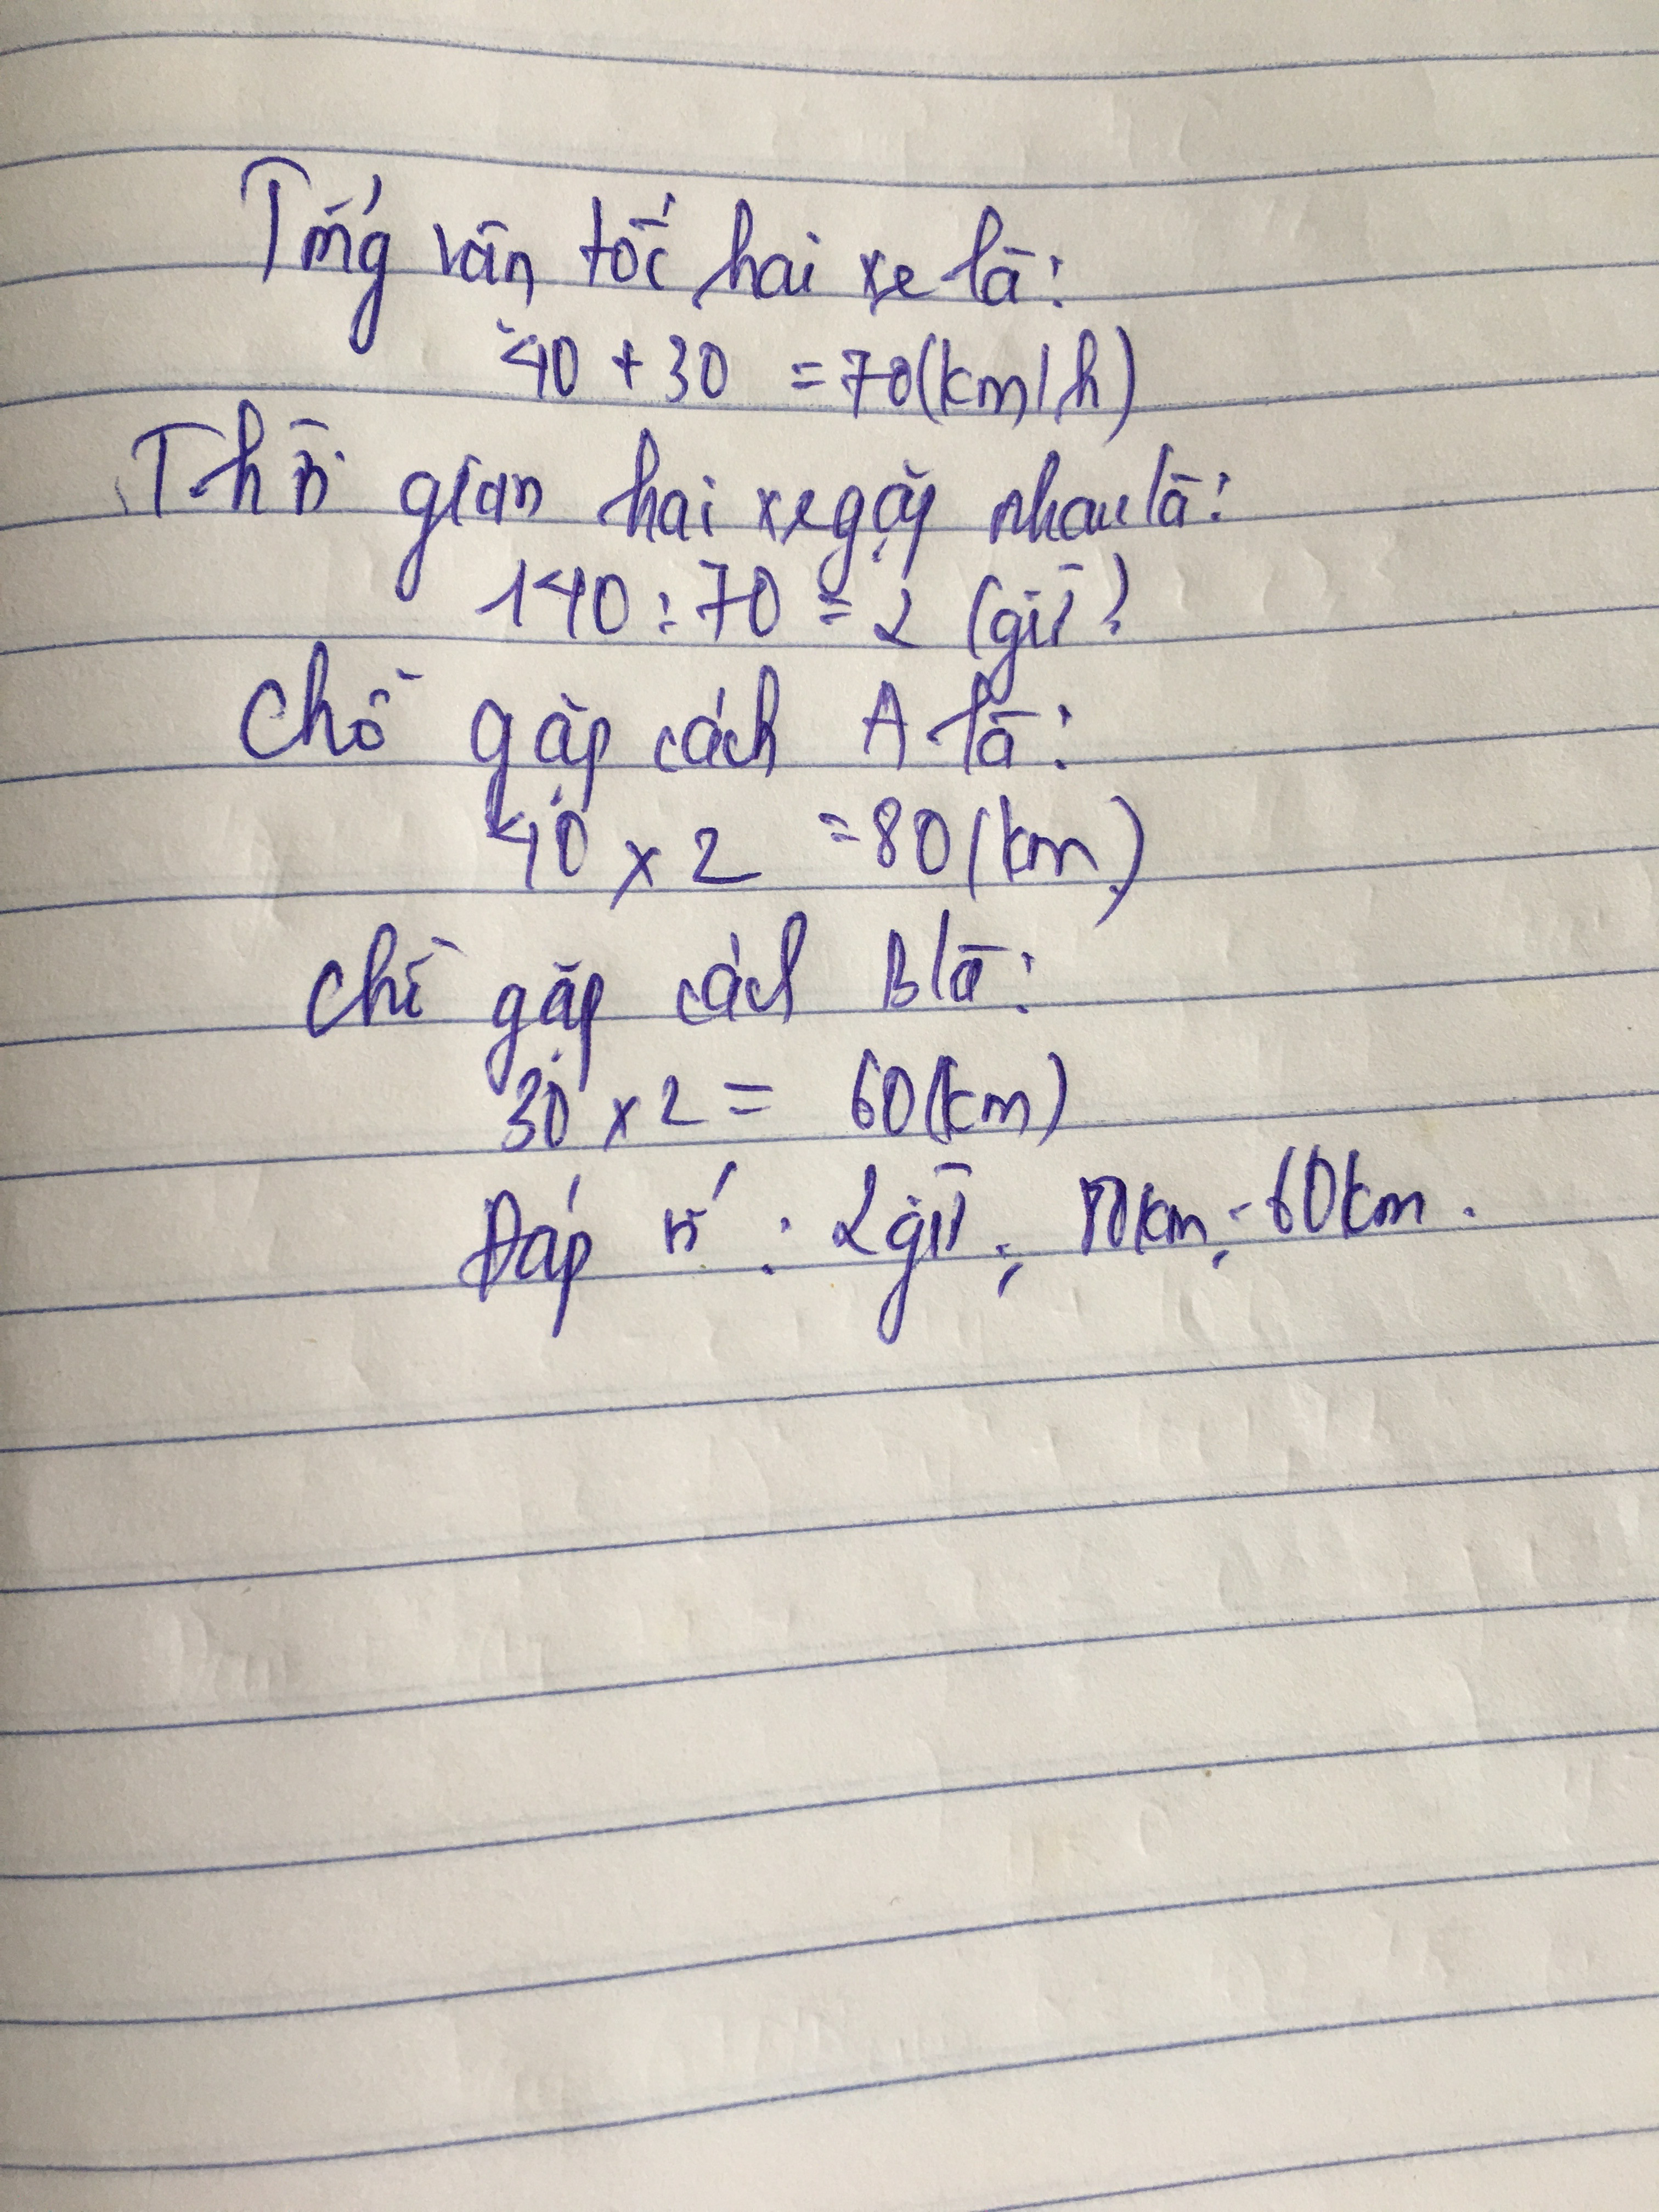 Tổng vận tốc hai xe là:
40 + 30 = 70 (km/h)
Thời gian hai xe gặp nhau là:
140 : 70 = 2 (giờ)
Chỗ gặp cách A là:
40 x 2 = 80 (km)
Chỗ gặp cách B là:
30 x 2 = 60 (km)
Đáp số : 2 giờ ; 80km ; 60km .